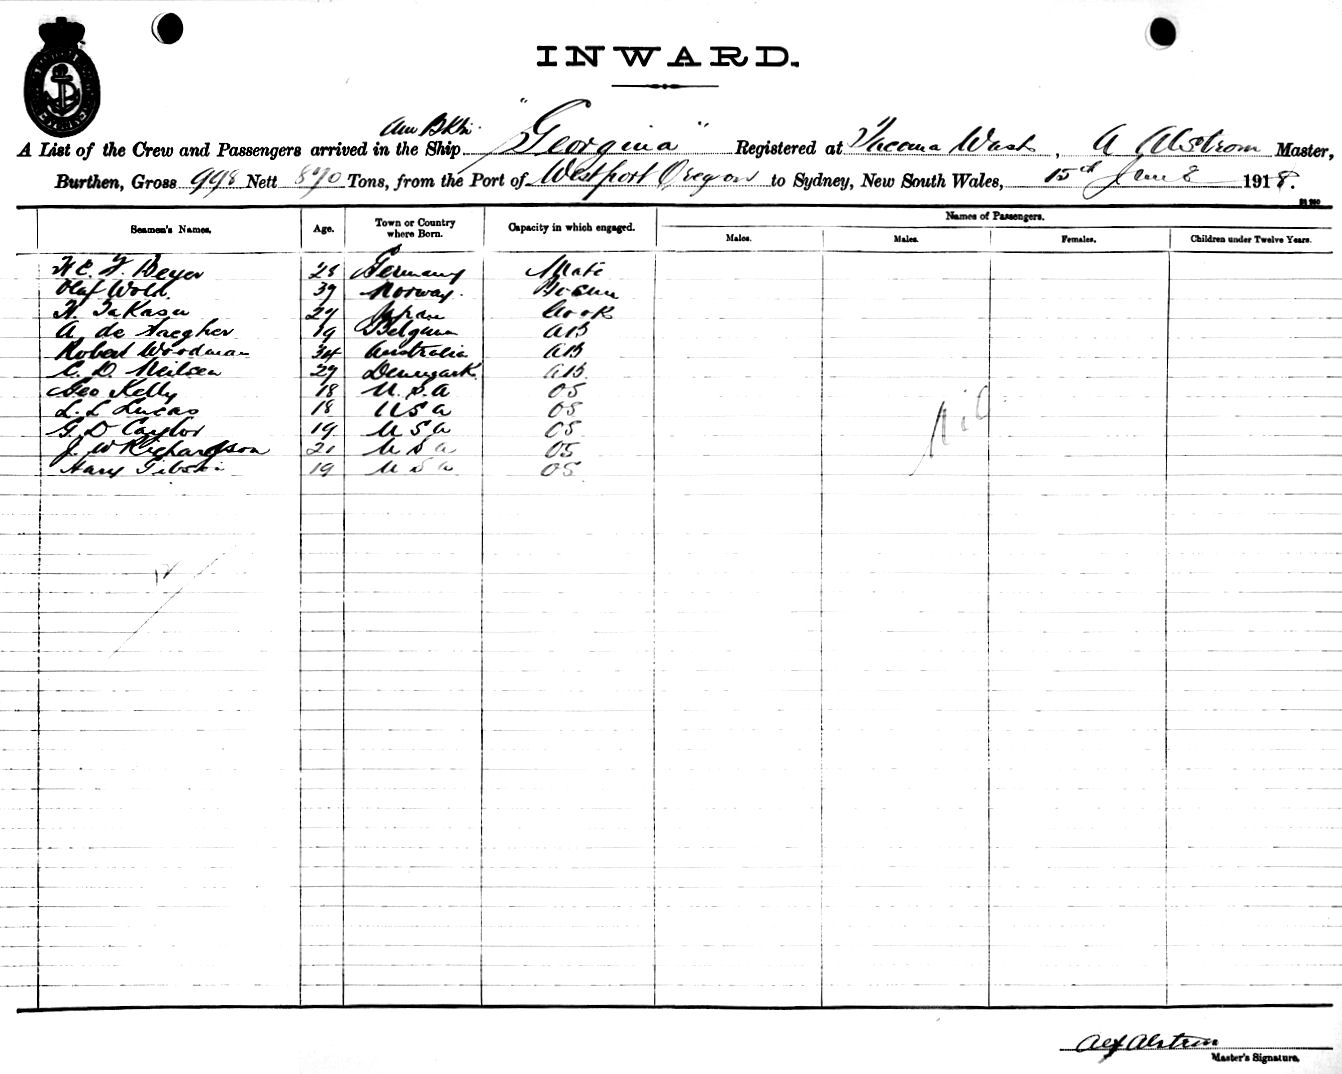 INWARD.
Am Bktn.
A List of the Crew and Passengers arrived in the Ship "Georgina" Registered at Tacoma Wash, A Alstrom Master,
Burthen, Gross 998 Nett 870 Tons, from the Port of Westport Oregon to Sydney, New South Wales, 15th June 1918.
Seamen's Names. Age. Town or Country where Born. Capacity in which engaged. Names of Passengers.
Males. Males. Females. Children under Twelve Years.
H C. F. Beyer Germany Mate
Olaf Wold. 39 Norway. Bosun
Takasu Japan Cook
A. de 19 Belgium AB
Robert Woodman 34 Australia AB
C. D. Neilsen 29 Denmark AB.
Geo Kelly 18 U.S.A OS
L. L Lucas 18 USA OS
G. D Taylor 19 USA OS
J. W Richardson 21 USA OS
Harry 19 USA OS.
Nil
12
Alex Alstrom
Master's Signature.